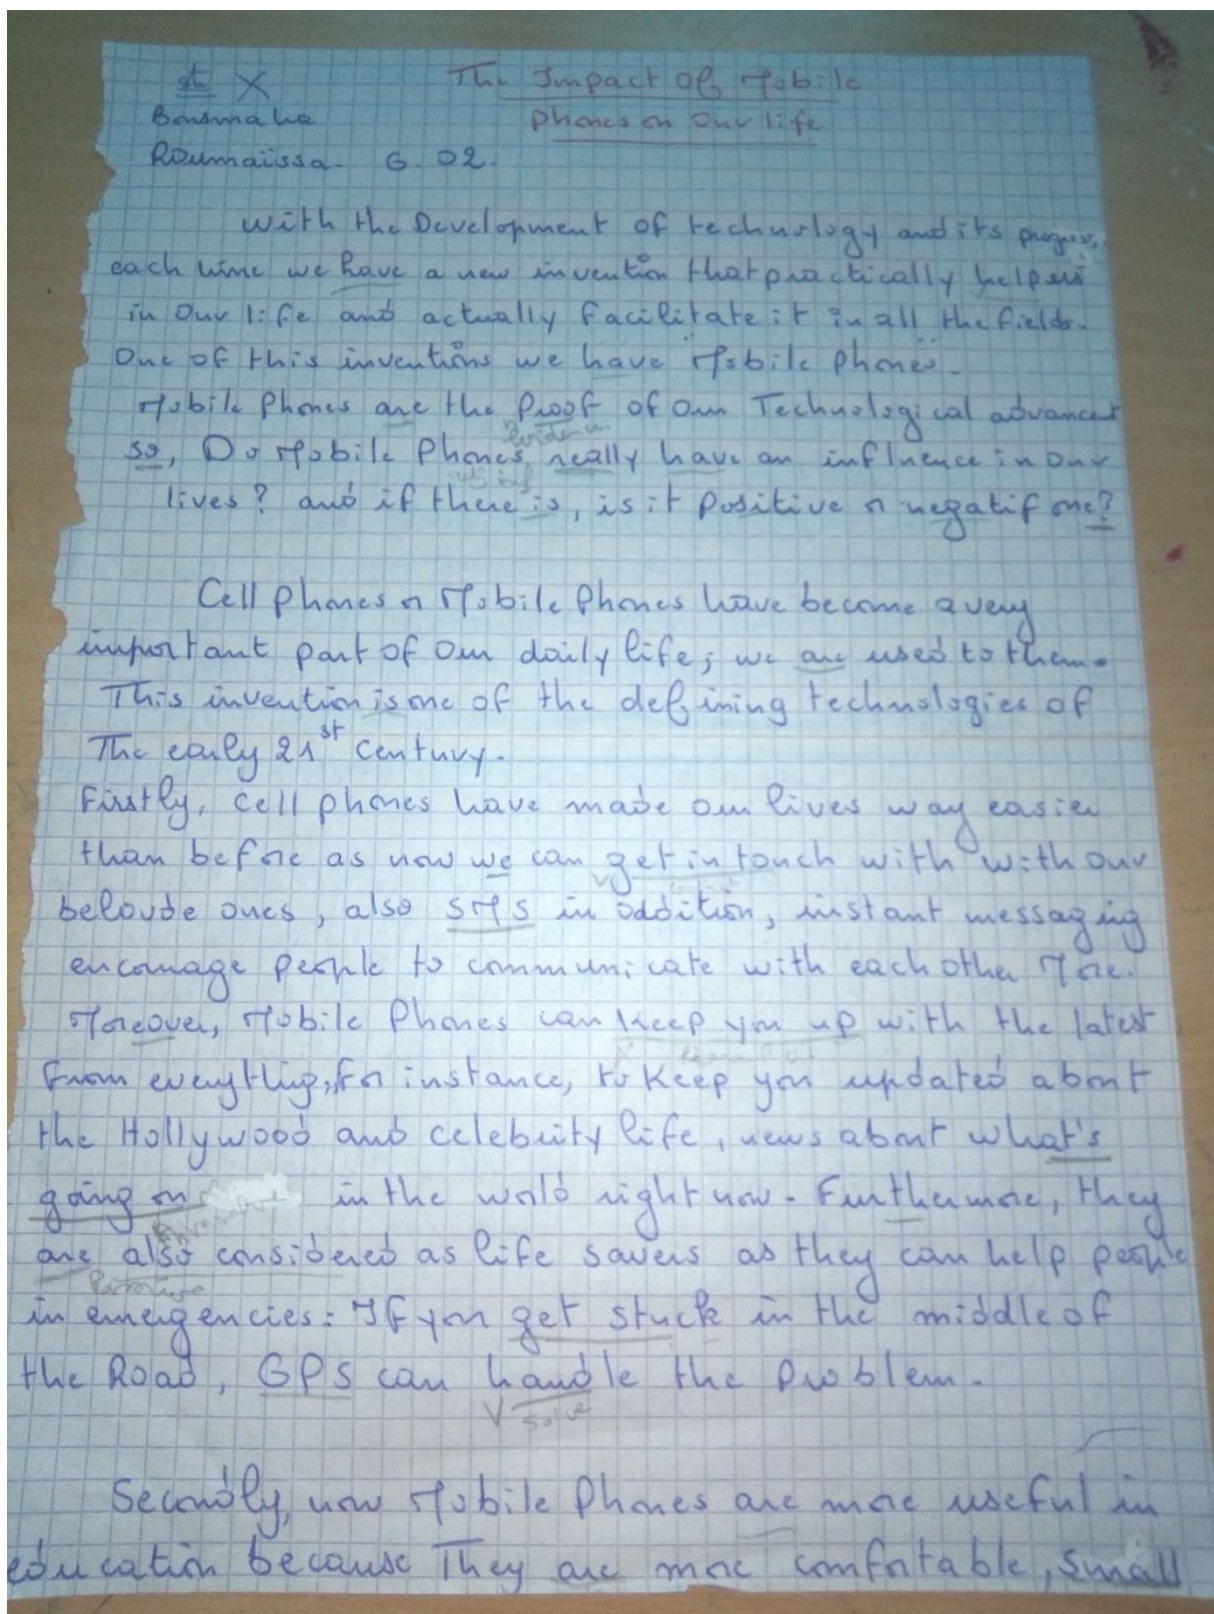 st X
The Impact Of Mobile
Phones on Our life
Bousmaha
Roumaissa. G. 02.
With the Development of technology and its progress,
each time we have a new invention that practically helps us
in Our life and actually facilitate it in all the fields.
One of this inventions we have "Mobile Phones".
Mobile Phones are the Proof of our Technological advances
Evidence
so, Do Mobile Phones really have an influence in our
lives? and if there is, is it Positive or negatif one?
Cell phones or Mobile Phones have become a very
important part of our daily life; we are used to them.
This invention is one of the defining technologies of
The early 21st Century.
Firstly, Cell phones have made our lives way easier
than before as now we can get in touch with with our
beloude ones, also SMS in addition, instant messaging
encourage people to communicate with each other More.
Moreover, Mobile Phones can Keep you up with the latest
From everything, for instance, to Keep you updated about
the Hollywood and celebrity life, news about what's
going on in the world right now. Furthermore, they
are also considered as life savers as they can help people
in emergencies: If you get stuck in the middle of
the Road, GPS can handle the Problem.
V solve
Secondly, now Mobile Phones are more useful in
education because They are more comfortable, small